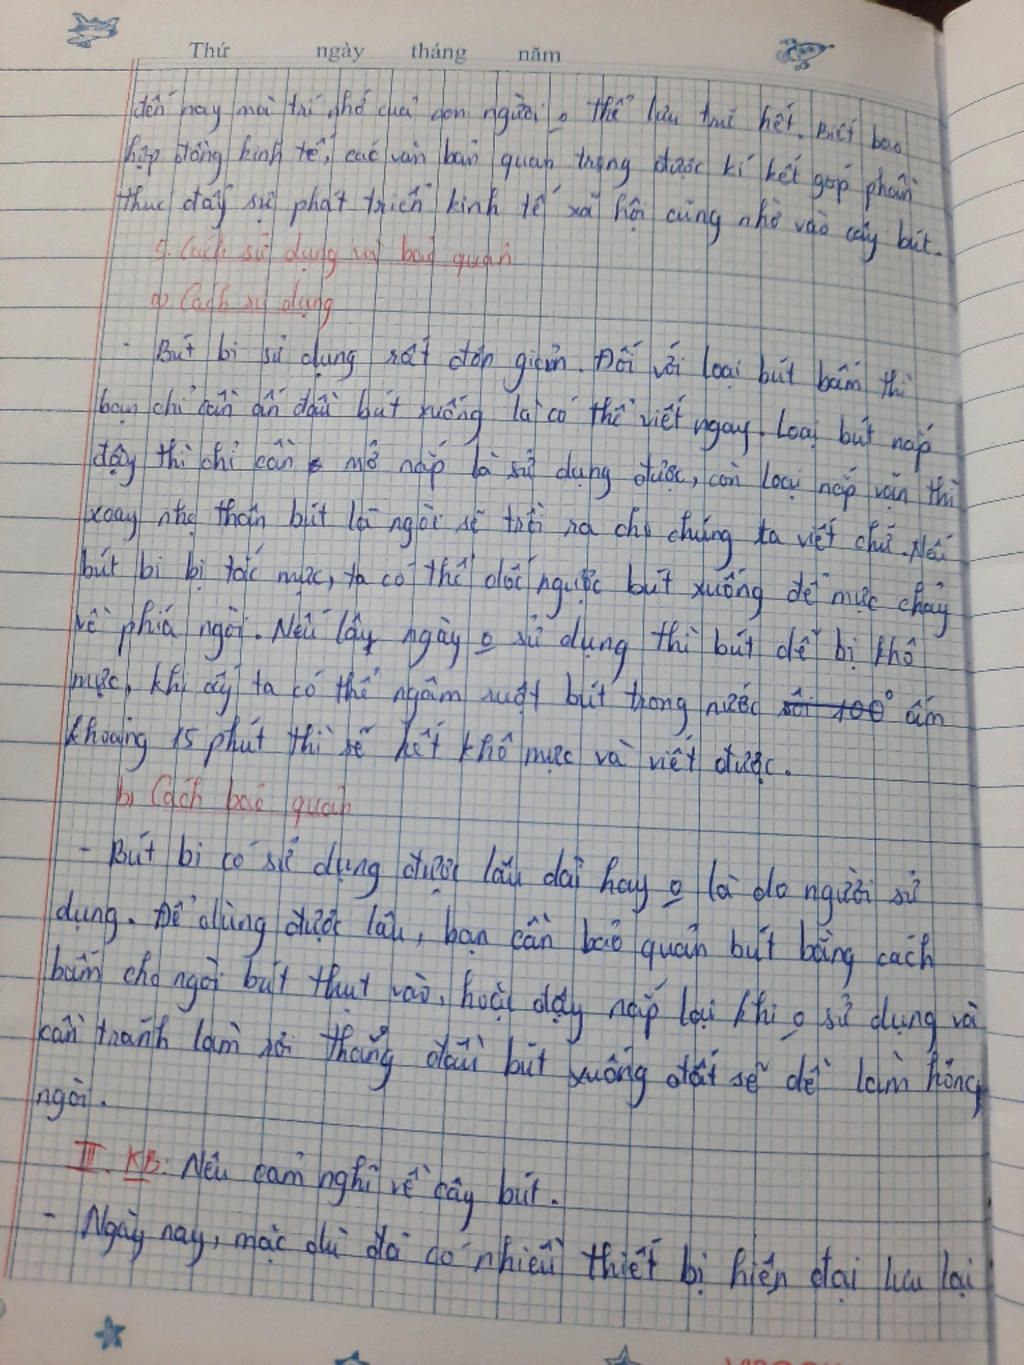 Thứ ngày tháng năm
đến nay mà trí nhớ của con người o thể lưu trữ hết. Biết bao
hợp đồng kinh tế, các văn bản quan trọng được kí kết góp phần
thúc đẩy sự phát triển kinh tế xã hội cũng nhờ vào cây bút.
5. Cách sử dụng và bảo quản
a) Cách sử dụng
- Bút bi sử dụng rất đơn giản. Đối với loại bút bấm thì
bạn chỉ cần ấn đầu bút xuống là có thể viết ngay. Loại bút nắp
đậy thì chỉ cần mở nắp là sử dụng được, còn loại nắp vặn thì
xoay nhẹ thân bút là ngòi sẽ trồi ra cho chúng ta viết chữ. Nếu
bút bi bị tắc mực, ta có thể dốc ngược bút xuống để mực chảy
về phía ngòi. Nếu lâu ngày o sử dụng thì bút dễ bị khô
mực, khi ấy ta có thể ngâm ruột bút trong nước sôi 100° ấm
khoảng 15 phút thì sẽ hết khô mực và viết được.
b) Cách bảo quản
- Bút bi có sử dụng được lâu dài hay o là do người sử
dụng. Để dùng được lâu, bạn cần bảo quản bút bằng cách
bấm cho ngòi bút thụt vào, hoặc đậy nắp lại khi o sử dụng và
cần tránh làm rơi thẳng đầu bút xuống đất sẽ dễ làm hỏng
ngòi.
III. KB: Nêu cảm nghĩ về cây bút.
- Ngày nay, mặc dù đã có nhiều thiết bị hiện đại lưu lại